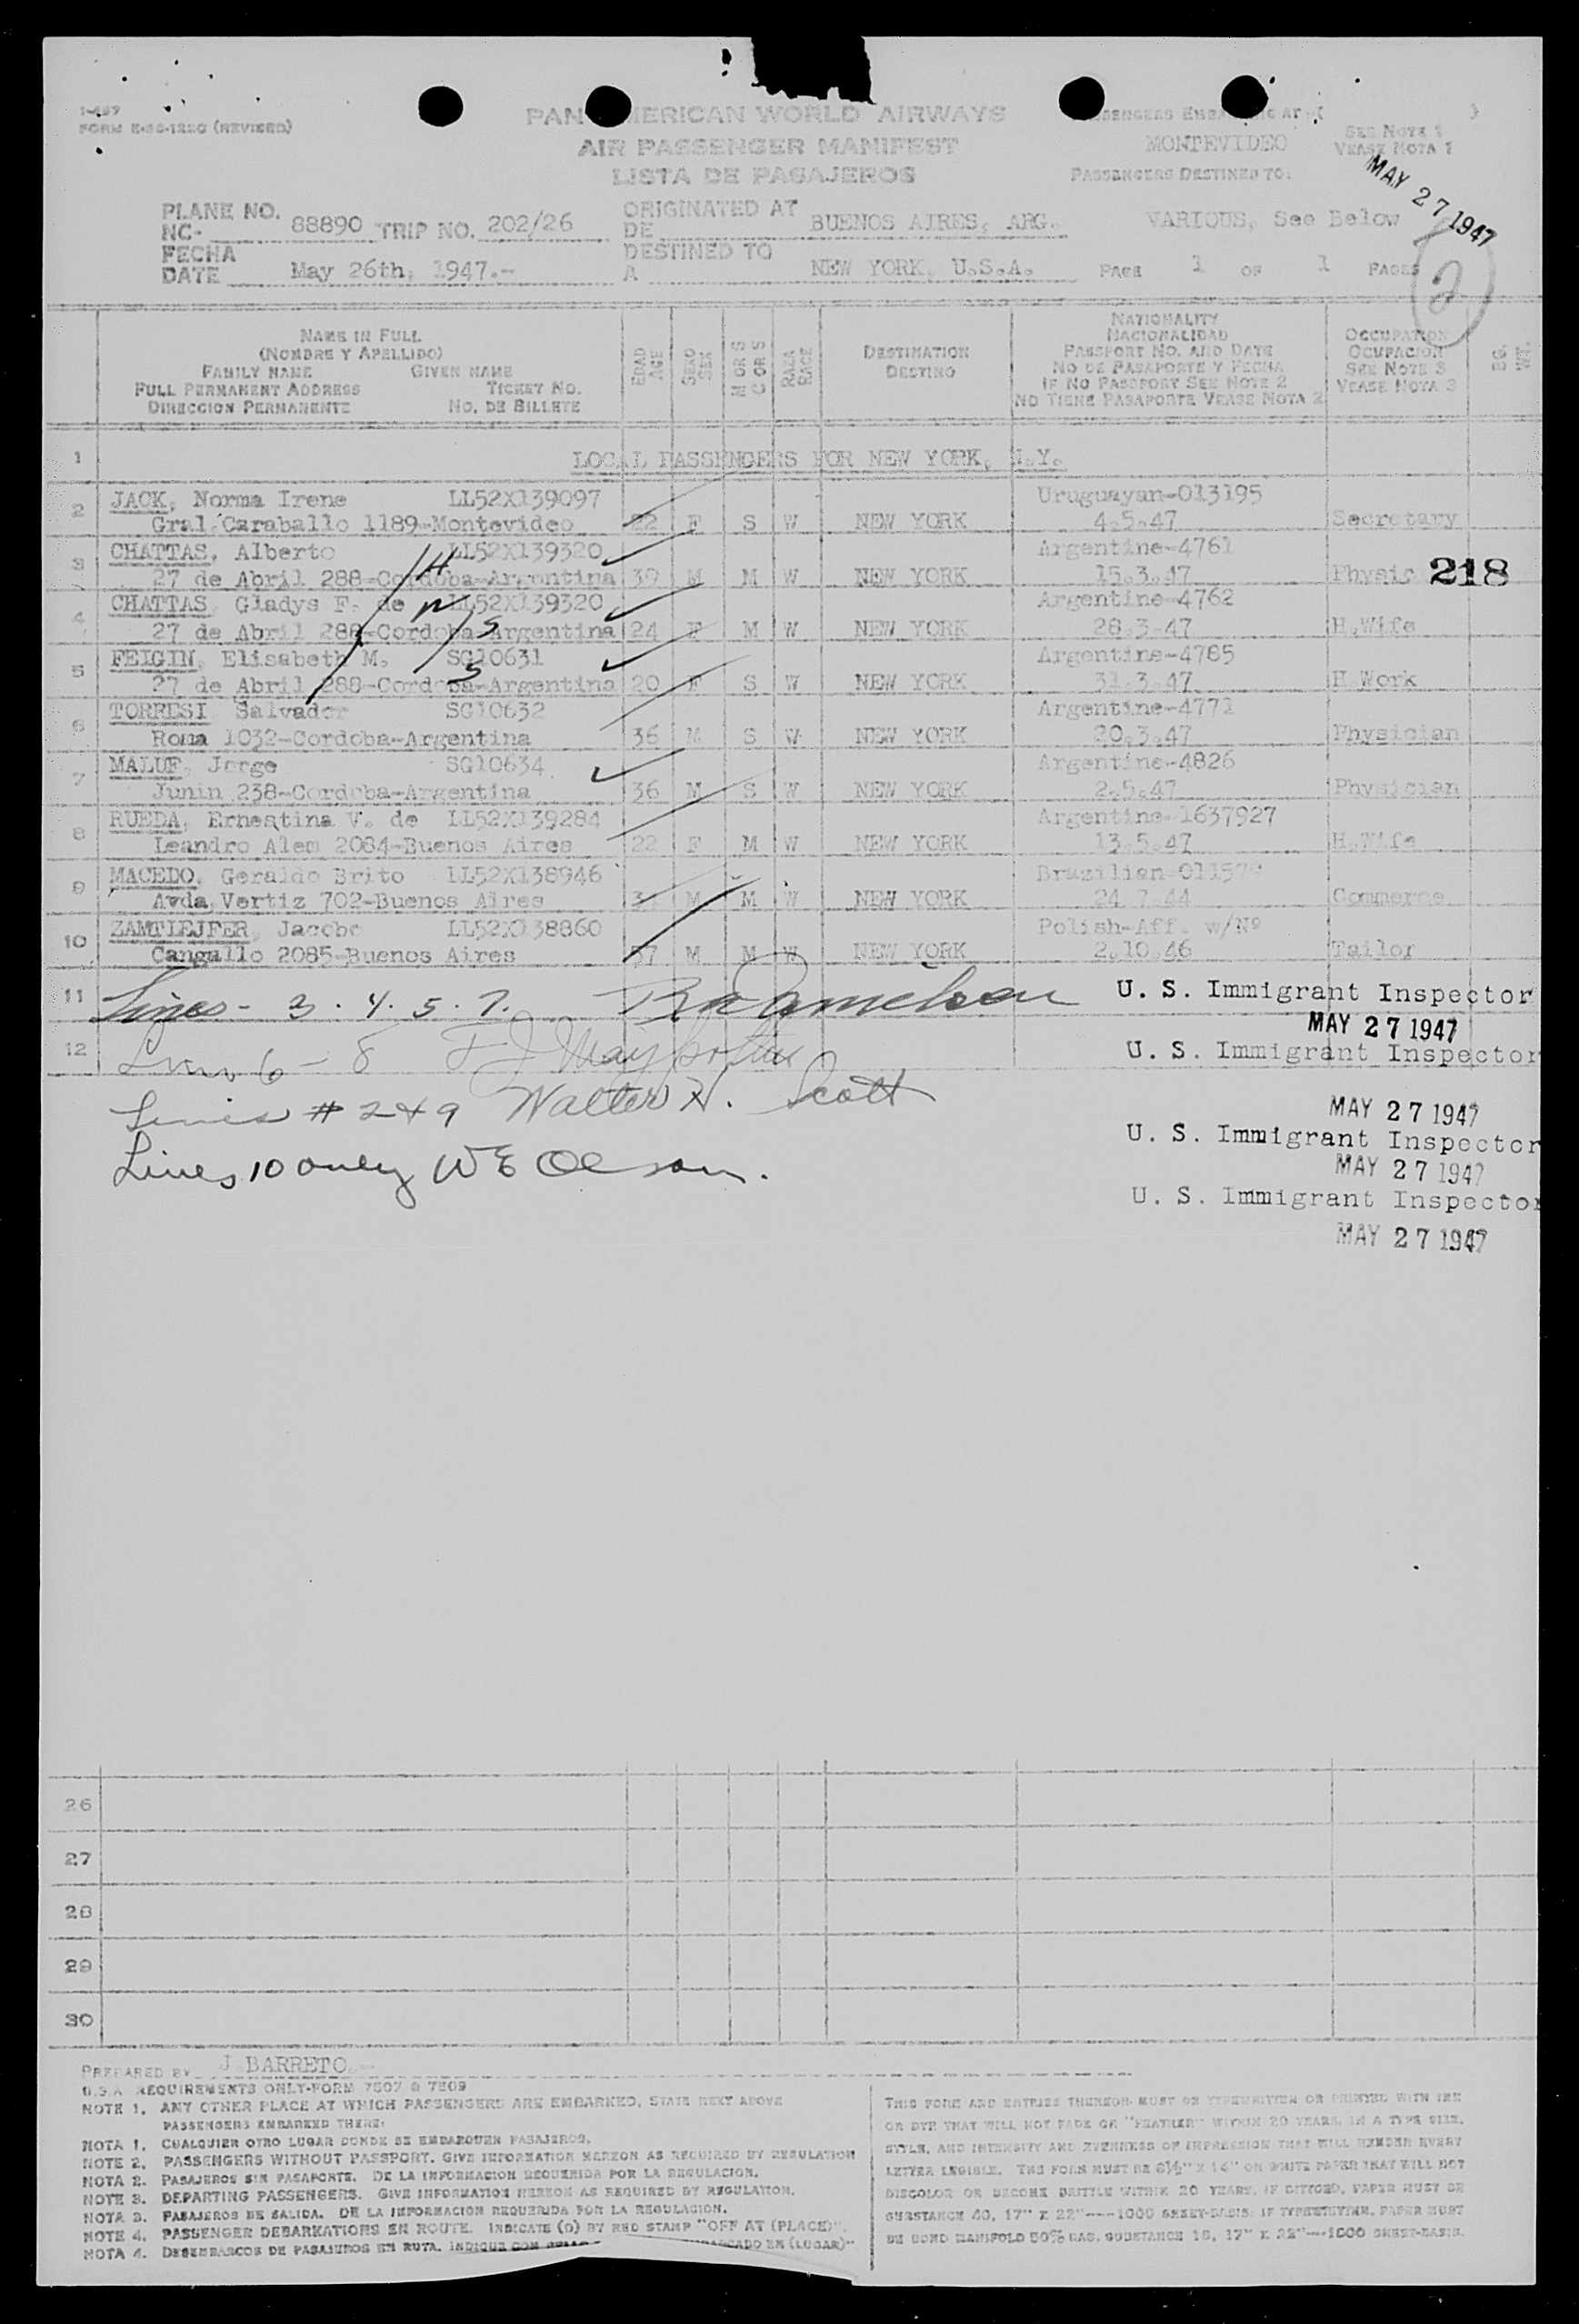 I-497
FORM E-36-122G (REVISED)
PAN AMERICAN WORLD AIRWAYS
AIR PASSENGER MANIFEST
LISTA DE PASAJEROS
PASSENGERS EMBARKING AT: ( )
MONTEVIDEO
SEE NOTE 1
VEASE NOTA 1
PASSENGERS DESTINED TO:
MAY 27 1947
PLANE NO.
NC- 88890 TRIP NO. 202/26
ORIGINATED AT
DE BUENOS AIRES, ARG.
VARIOUS, See Below
FECHA
DATE May 26th, 1947.-
DESTINED TO
A NEW YORK, U.S.A.
PAGE 1 OF 1 PAGES
2
NAME IN FULL
(NOMBRE Y APELLIDO)
FAMILY NAME GIVEN NAME
FULL PERMANENT ADDRESS TICKET NO.
DIRECCION PERMANENTE NO. DE BILLETE
EDAD
AGE
SEXO
SEX
M OR S
C OR S
RAZA
RACE
DESTINATION
DESTINO
NATIONALITY
NACIONALIDAD
PASSPORT NO. AND DATE
NO DE PASAPORTE Y FECHA
IF NO PASSPORT SEE NOTE 2
NO TIENE PASAPORTE VEASE NOTA 2
OCCUPATION
OCUPACION
SEE NOTE 3
VEASE NOTA 3
WT.
1 LOCAL PASSENGERS FOR NEW YORK, N.Y.
2 JACK, Norma Irene LL52X139097 Uruguayan-013195
Gral. Caraballo 1189-Montevideo 22 F S W NEW YORK 4.5.47 Secretary
3 CHATTAS, Alberto LL52X139320 Argentine-4761
27 de Abril 288-Cordoba-Argentina 39 M M W NEW YORK 15.3.47 Physic 218
4 CHATTAS, Gladys F. de LL52X139320 Argentine-4762
27 de Abril 288-Cordoba-Argentina 24 F M W NEW YORK 28.3.47 H.Wife
5 FEIGIN, Elisabeth M. SG10631 Argentine-4785
27 de Abril 288-Cordoba-Argentina 20 F S W NEW YORK 31.3.47 H.Work
6 TORRESI Salvador SG10632 Argentine-4771
Roma 1032-Cordoba-Argentina 36 M S W NEW YORK 20.3.47 Physician
7 MALUF, Jorge SG10634 Argentine-4826
Junin 238-Cordoba-Argentina 36 M S W NEW YORK 2.5.47 Physician
8 RUEDA, Ernestina V. de LL52X139284 Argentine-1637927
Leandro Alem 2084-Buenos Aires 22 F M W NEW YORK 13.5.47 H.Wife
9 MACEDO, Geraldo Brito LL52X138946 Brazilian
Avda. Vertiz 702-Buenos Aires M M W NEW YORK 24.7.44 Commerce
10 ZAMTLEJFER, Jacobo LL52X138860 Polish-Aff. w/Nº
Cangallo 2085-Buenos Aires 57 M M W NEW YORK 2.10.46 Tailor
11 Lines - 3. 4. 5. 7. U. S. Immigrant Inspector
MAY 27 1947
12 Lines 6 - 8 U. S. Immigrant Inspector
Lines # 2 & 9 Walter H. Scott MAY 27 1947
U. S. Immigrant Inspector
Lines 10 only W E Olson. MAY 27 1947
U. S. Immigrant Inspector
MAY 27 1947
26
27
28
29
30
PREPARED BY J. BARRETO.-
U.S.A REQUIREMENTS ONLY-FORM 7507 & 7509
NOTE 1. ANY OTHER PLACE AT WHICH PASSENGERS ARE EMBARKED, STATE NEXT ABOVE
PASSENGERS EMBARKED THERE:
NOTA 1. CUALQUIER OTRO LUGAR DONDE SE EMBARQUEN PASAJEROS.
NOTE 2. PASSENGERS WITHOUT PASSPORT. GIVE INFORMATION HEREON AS REQUIRED BY REGULATION
NOTA 2. PASAJEROS SIN PASAPORTE. DE LA INFORMACION REQUERIDA POR LA REGULACION.
NOTE 3. DEPARTING PASSENGERS. GIVE INFORMATION HEREON AS REQUIRED BY REGULATION.
NOTA 3. PASAJEROS DE SALIDA. DE LA INFORMACION REQUERIDA POR LA REGULACION.
NOTE 4. PASSENGER DEBARKATIONS EN ROUTE. INDICATE (O) BY RED STAMP "OFF AT (PLACE)".
NOTA 4. DESEMBARCOS DE PASAJEROS EN RUTA. INDIQUE CON EN (LUGAR)"
THIS FORM AND ENTRIES THEREON MUST BE TYPEWRITTEN OR PRINTED WITH INK
OR DYE THAT WILL NOT FADE OR "FEATHER" WITHIN 20 YEARS, IN A TYPE SIZE,
STYLE, AND INTENSITY AND EVENNESS OF IMPRESSION THAT WILL RENDER EVERY
LETTER LEGIBLE. THE FORM MUST BE 8½" X 14" ON WHITE PAPER THAT WILL NOT
DISCOLOR OR BECOME BRITTLE WITHIN 20 YEARS. IF DITTOED, PAPER MUST BE
SUBSTANCE 40, 17" X 22"---1000 SHEET-BASIS; IF TYPEWRITTEN, PAPER MUST
BE BOND MANIFOLD 50% RAG, SUBSTANCE 16, 17" X 22"---1000 SHEET-BASIS.